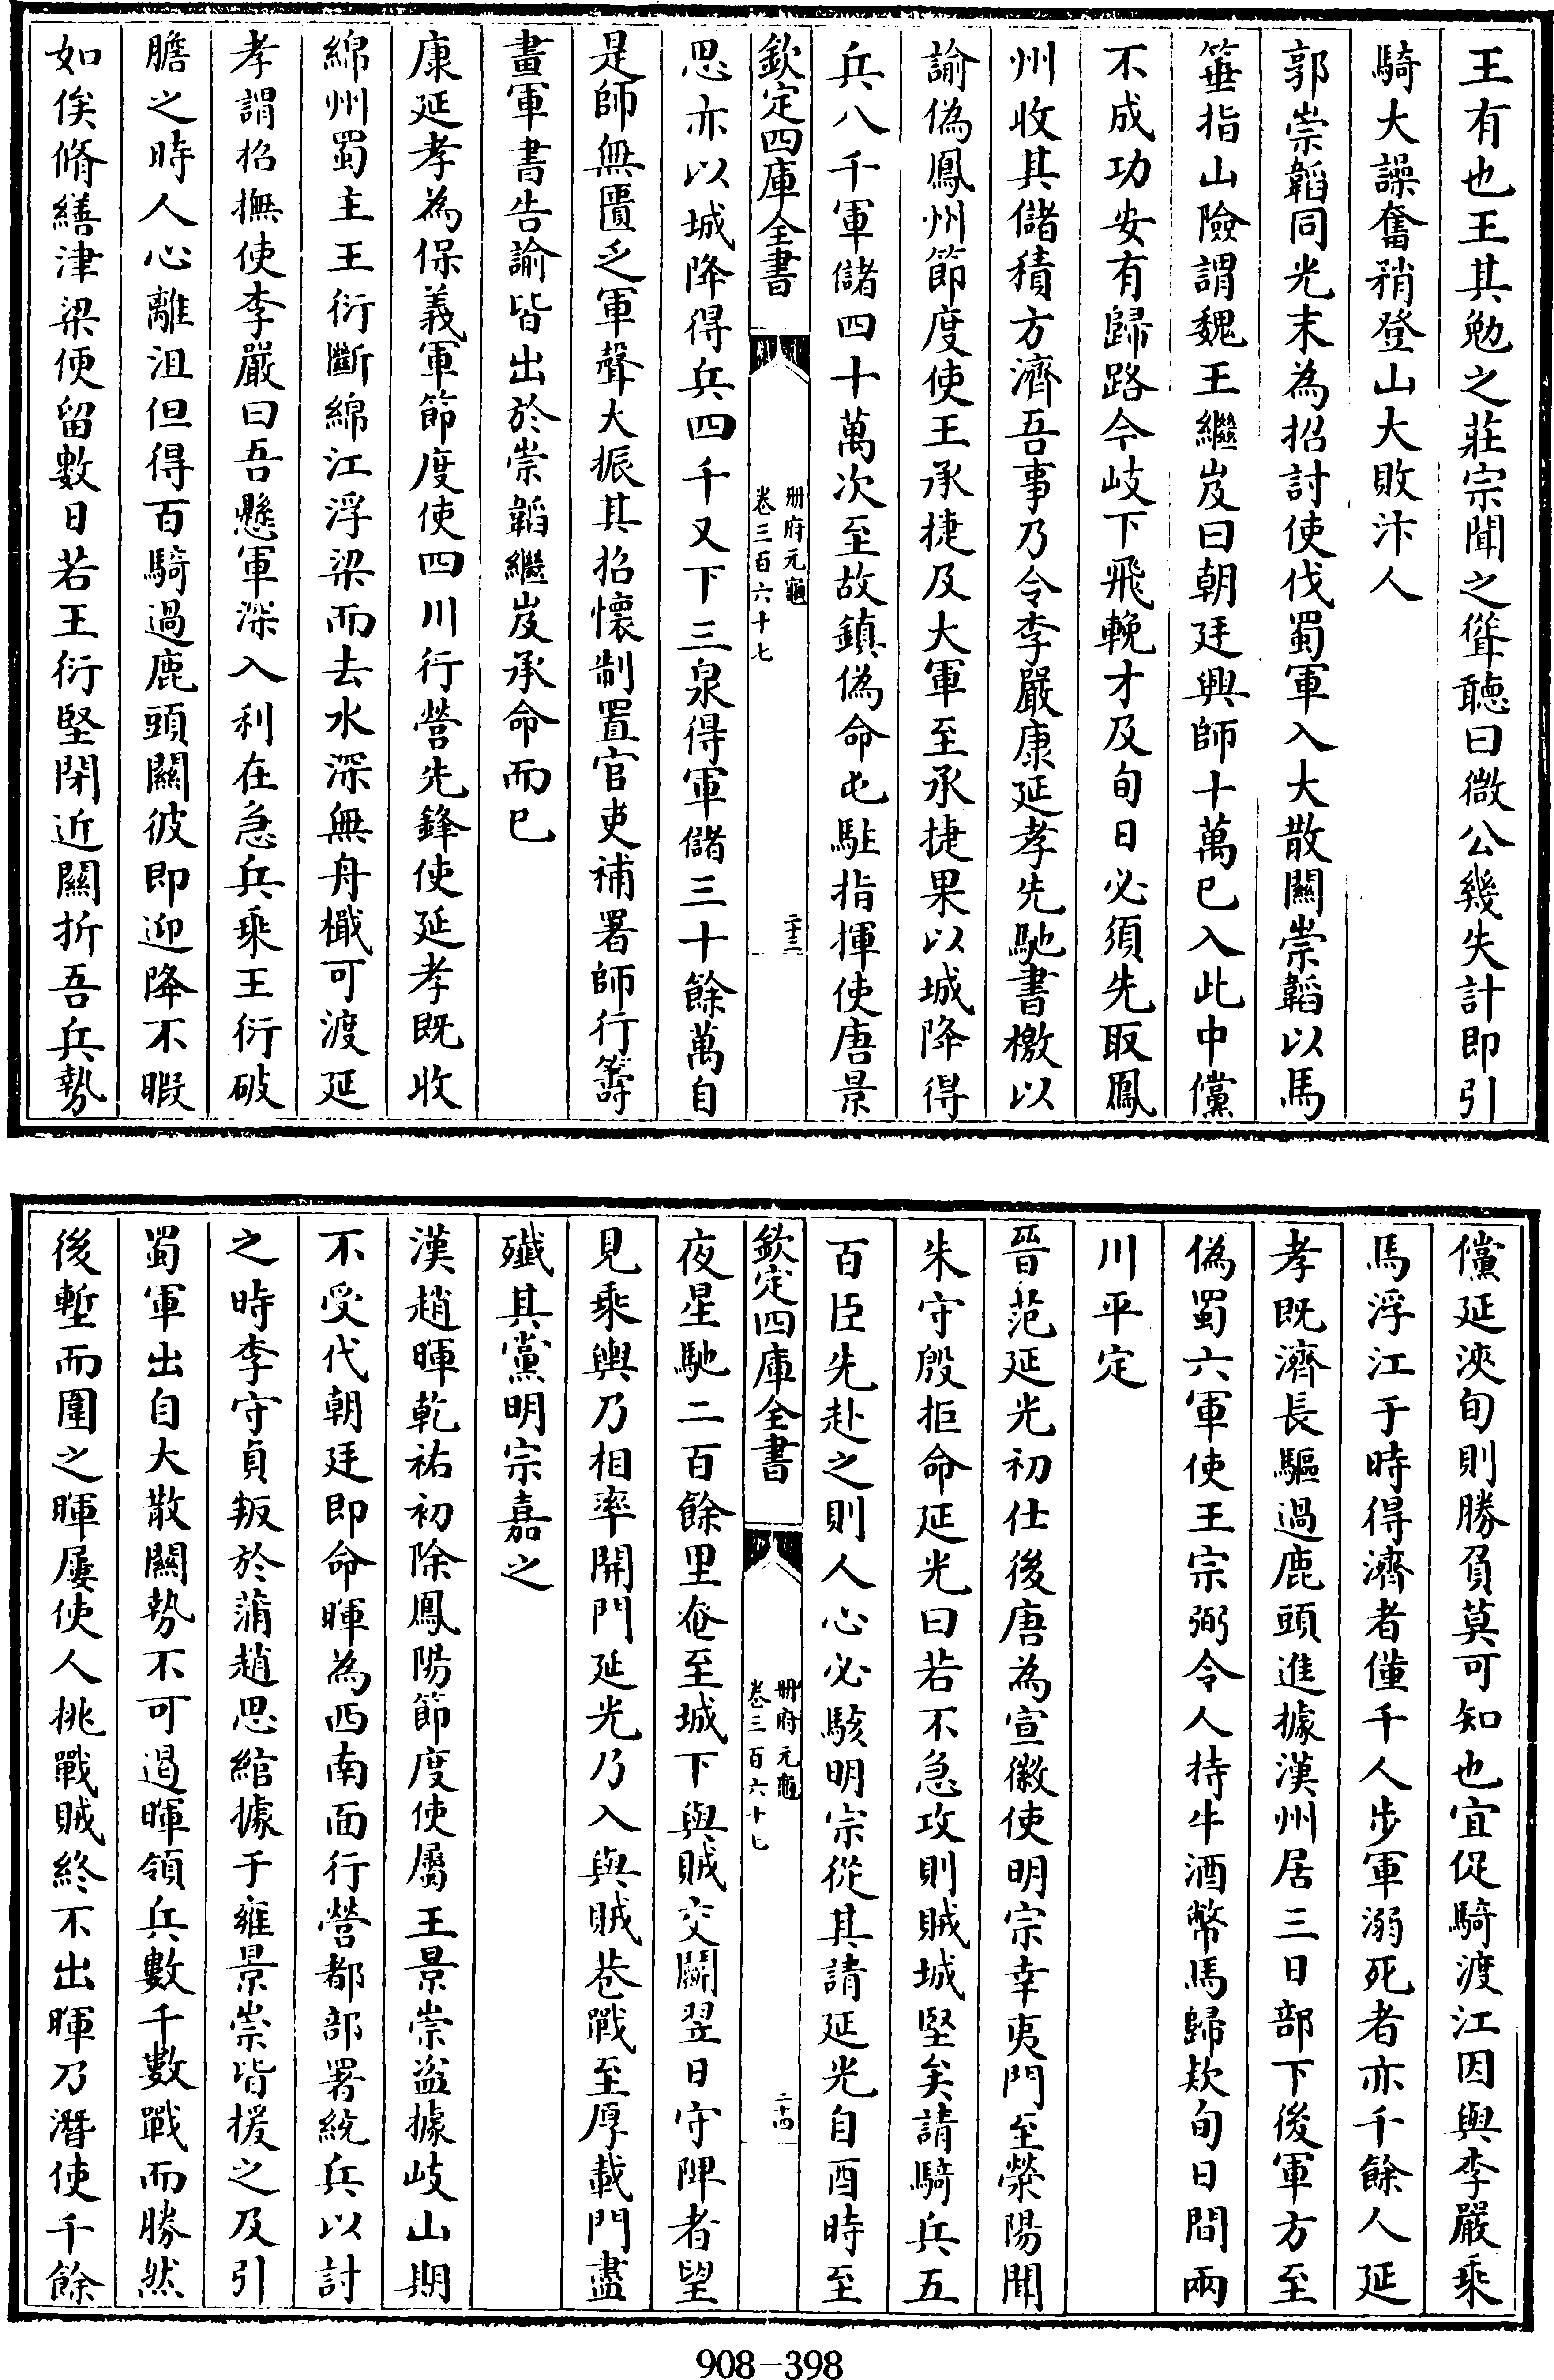 王有也王其勉之莊宗聞之聳聽曰微公幾失計即引
騎大譟奮矟登山大敗汴人
郭崇韜同光末為招討使伐蜀軍入大散關崇韜以馬
箠指山險謂魏王繼岌曰朝廷興師十萬已入此中儻
不成功安有歸路今岐下飛輓才及旬日必須先取鳳
州收其儲積方濟吾事乃令李嚴康延孝先馳書檄以
諭偽鳳州節度使王承捷及大軍至承捷果以城降得
兵八千軍儲四十萬次至故鎮偽命屯駐指揮使唐景
欽定四庫全書
冊府元龜
卷三百六十七
二十三
思亦以城降得兵四千又下三泉得軍儲三十餘萬自
是師無匱乏軍聲大振其招懷制置官吏補署師行籌
畫軍書告諭皆出於崇韜繼岌承命而已
康延孝為保義軍節度使四川行營先鋒使延孝既收
綿州蜀主王衍斷綿江浮梁而去水深無舟檝可渡延
孝謂招撫使李嚴曰吾懸軍深入利在急兵乘王衍破
膽之時人心離沮但得百騎過鹿頭關彼即迎降不暇
如俟脩繕津梁便留數日若王衍堅閉近關折吾兵勢
儻延浹旬則勝負莫可知也宜促騎渡江因與李嚴乘
馬浮江于時得濟者僅千人步軍溺死者亦千餘人延
孝既濟長驅過鹿頭進據漢州居三日部下後軍方至
偽蜀六軍使王宗弼令人持牛酒幣馬歸欵旬日間兩
川平定
晉范延光初仕後唐為宣徽使明宗幸夷門至滎陽聞
朱守殷拒命延光曰若不急攻則賊城堅矣請騎兵五
百臣先赴之則人心必駭明宗從其請延光自酉時至
欽定四庫全書
冊府元龜
卷三百六十七
二十四
夜星馳二百餘里奄至城下與賊交鬭翌日守陴者望
見乘輿乃相率開門延光乃入與賊巷戰至厚載門盡
殲其黨明宗嘉之
漢趙暉乾祐初除鳳陽節度使屬王景崇盜據岐山期
不受代朝廷即命暉為西南面行營都部署統兵以討
之時李守貞叛於蒲趙思綰據于雍景崇皆援之及引
蜀軍出自大散關勢不可遏暉領兵數千數戰而勝然
後塹而圍之暉屢使人挑戰賊終不出暉乃潛使千餘
908-398